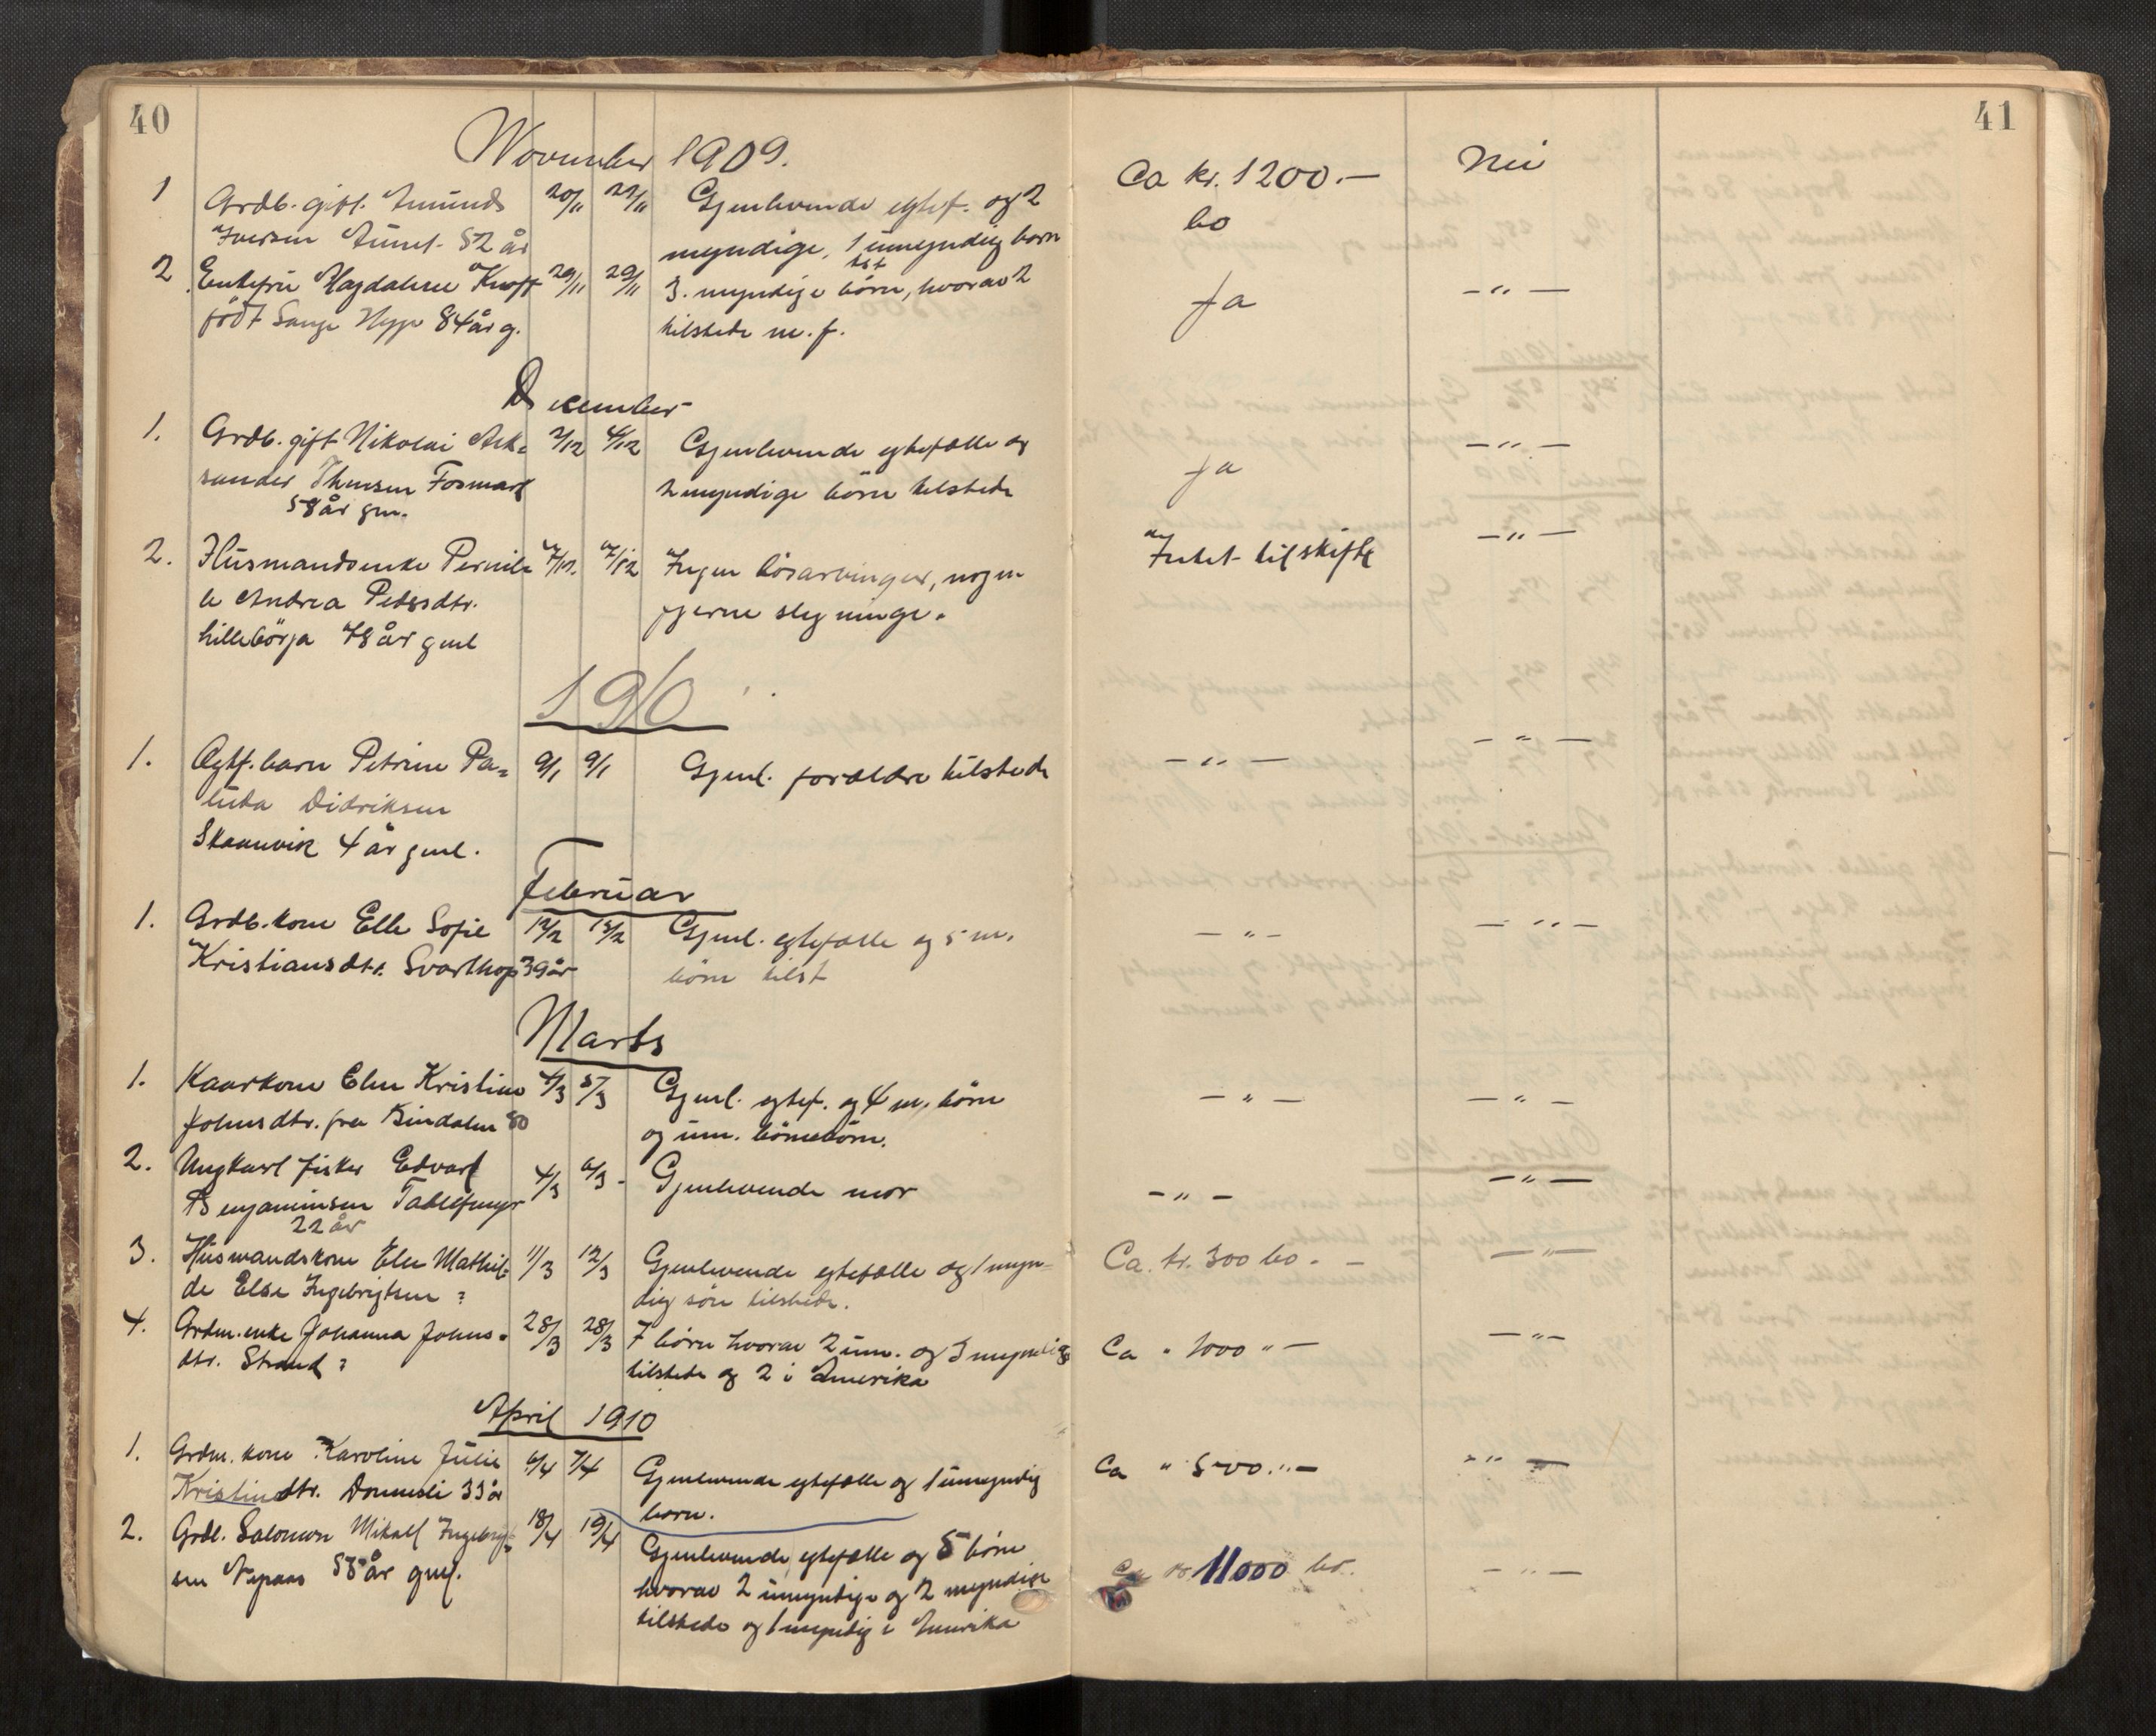 40
41
November 1909.
1 Grdb. gift. Amunds 20/11 22/11 Gjenlevende egtef. og 2 Ca kr. 1200.— Nei
Iversen Aunet 52 år myndige, 1 umyndig barn bo
2 Enkefru Magdalene Knoff 29/11 29/11 3. myndige børn, hvorav 2 Ja —"—
født Lange 84 år g. tilstede m. f.
December
1. Grdb. gift Nikolai Alek= 2/12 4/12 Gjenlevende egtefælle og Ja —"—
sander Thmsen Fosmark 2 myndige børn tilstede
58 år gm.
2. Husmandsenke Pernil= 7/12. 7/12 Ingen livsarvinger, nogen Intet til skifte —"—
le Andrea Pedersdtr. fjerne slegninge.
Lillebørja 78 år gml
1910
1. Ægtf. barn Petrine Pa= 9/1 9/1 Gjenl. forældre tilstede —"— —"—
luda Didriksen
Skaanvik 4 år gml.
Februar
1. Grdb. kone Elle Sofie 12/2 13/2 Gjenl. egtefælle og 5 m. —"— —"—
Kristiansdtr. Svarthop 39 år børn tilst
Marts
1. Kaarkone Elen Kristine 4/3 5/3 Gjenl. egtef. og 4 m. børn —"— —"—
Johnsdtr. fra Bindalen 80 og um. børnebørn.
2. Ungkarl fisker Edvart 4/3 6/3 - Gjenlevende mor —"— —"—
Benjaminsen
22 år
3. Husmandskone Elen Mathil= 11/3 12/3 Gjenlevende egtefælle og 1 myn= Ca. kr. 300 bo. — —"—
de Else Ingebrigtsen ? dig søn tilstede.
4. Grdm. enke Johanna Johns= 28/3 28/3 7 børn hvorav 2 um. og 3 myndige Ca " 1000 " — —"—
dtr. Strand ? tilstede og 2 i Amerika
April 1910
1. Grdm. kone Karoline Julie 6/4 7/4 Gjenlevende egtefælle og 1 umyndig Ca " 500 " — " —
Kristindtr. 33 år barn.
2. Grdb. Salomon Mikal Ingebrigt= 18/4 19/4 Gjenlevende egtefælle og 5 børn Ca kr 11000 bo. —"—
sen 58 år gml. hvorav 2 umyndige og 2 myndige
tilstede og 1 myndig i Amerika